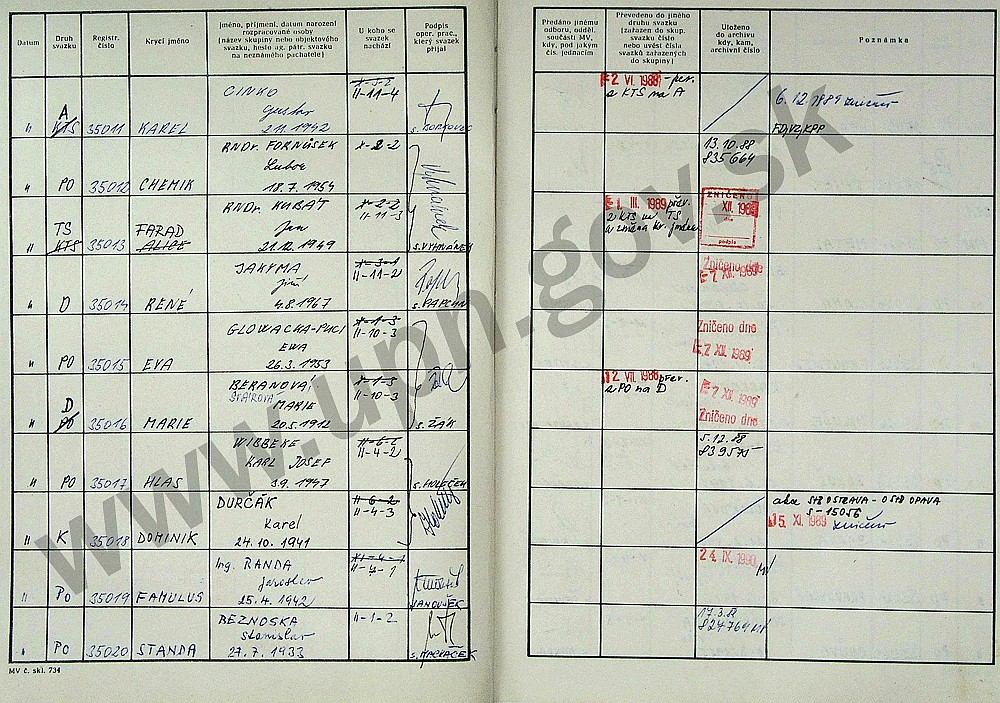 Datum
Druh svazku
Registr. číslo
Krycí jméno
Jméno, příjmení, datum narození
rozpracované osoby
(název skupiny nebo objektového
svazku, heslo ag. pátr. svazku
na neznámého pachatele)
U koho se
svazek
nachází
Podpis
oper. prac.,
který svazek
přijal
Předáno jinému
odboru, odděl.
součásti MV,
kdy, pod jakým
čís. jednacím
Převedeno do jiného
druhu svazku
(zařazen do skup.
svazku číslo
nebo uvést čísla
svazků zařazených
do skupiny)
Uloženo
do archivu
kdy, kam,
archivní číslo
Poznámka
A
KTS 35011 KAREL
CINKO
Gustav
2.11.1942
II-11-4
2. VI. 1988 - per.
z KTS na A
6.12.1989 zničen
" PO 35012 CHEMIK
RNDr. FORNŮSEK
Lubor
18.7.1954
X-2-2
13.10.88
835664
TS
KTS 35013 FARAD
ALICE
RNDr. KUBÁT
Jan
21.12.1949
X-2-2
II-11-3
s. VYHNÁNEK
1. III. 1989
z KTS na TS
ZNIČENO
XII. 1989
podpis
" D 35014 RENÉ
JAKYMA
Jiří
4.8.1967
X-3-1
II-11-2
Zničeno dne
7. XII. 1989
" PO 35015 EVA
GLOWACKA-PUCI
EWA
26.3.1953
X-1-3
II-10-3
Zničeno dne
7. XII. 1989
D
PO 35016 MARIE
BERANOVÁ
MARIE
20.5.1912
X-1-3
II-10-3
s. ŽÁK
12. VII. 1988 přev.
z PO na D
7. XII. 1989
Zničeno dne
" PO 35017 HLAS
WIBBEKE
KARL JOSEF
3.9.1947
II-4-2
s. HOLEČEK
5.12.88
839575
" K 35018 DOMINIK
DURČÁK
Karel
24.10.1941
II-6-2
II-4-3
akce StB OSTRAVA - O StB OPAVA
S-15056
15. XI. 1989 zničen
" PO 35019 FAMULUS
Ing. RANDA
Jaroslav
25.4.1942
II-7-1
s. HANOUŠEK
24. IX. 1990
" PO 35020 STANDA
BEZNOSKA
Stanislav
27.7.1933
II-1-2
17.3.88
824764
MV č. skl. 734
www.upn.gov.sk